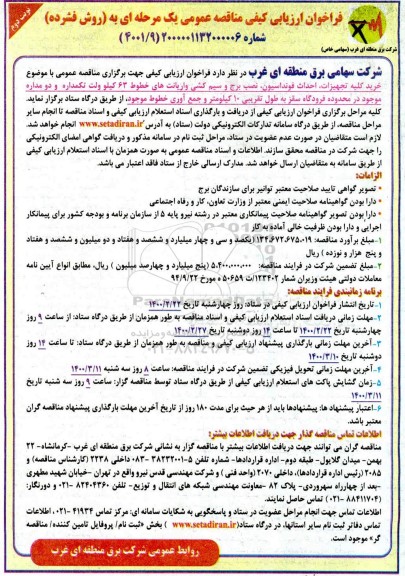 نوبت دوم
فراخوان ارزیابی کیفی مناقصه عمومی یک مرحله ای به (روش فشرده)
شماره ۲۰۰۰۰۰۱۱۳۲۰۰۰۰۰۶ (۴۰۰۱/۹)
شرکت برق منطقه ای غرب (سهامی خاص)
شرکت سهامی برق منطقه ای غرب در نظر دارد فراخوان ارزیابی کیفی جهت برگزاری مناقصه عمومی با موضوع
خرید کلیه تجهیزات، احداث فونداسیون، نصب برج و سیم کشی واریانت های خطوط ۶۳ کیلو ولت تکمداره و دو مداره
موجود در محدوده فرودگاه سقز به طول تقریبی ۱۰ کیلومتر و جمع آوری خطوط موجود، از طریق درگاه ستاد برگزار نماید.
کلیه مراحل برگزاری فراخوان ارزیابی کیفی از دریافت و بارگذاری اسناد استعلام ارزیابی کیفی و اسناد مناقصه تا انجام سایر
مراحل مناقصه، از طریق درگاه سامانه تدارکات الکترونیکی دولت (ستاد) به آدرس www.setadiran.ir انجام خواهد شد.
لازم است متقاضیان در صورت عدم عضویت در ستاد، مراحل ثبت نام در سامانه مذکور و دریافت گواهی امضای الکترونیکی
را جهت شرکت در مناقصه محقق سازند. اطلاعات و اسناد مناقصه عمومی به صورت همزمان با اسناد استعلام ارزیابی کیفی
از طریق سامانه به متقاضیان ارسال خواهد شد. مدارک ارسالی خارج از ستاد فاقد اعتبار می باشد.
الزامات:
- تصویر گواهی تایید صلاحیت معتبر توانیر برای سازندگان برج
- دارا بودن گواهینامه صلاحیت ایمنی معتبر از وزارت تعاون، کار و رفاه اجتماعی
- دارا بودن تصویر گواهینامه صلاحیت پیمانکاری معتبر در رشته نیرو پایه ۵ از سازمان برنامه و بودجه کشور برای پیمانکار
اجرایی و دارا بودن ظرفیت خالی آماده به کار
۱- مبلغ برآورد مناقصه: ۱۳۴،۶۷۲،۶۷۵،۰۱۹ (یکصد و سی و چهار میلیارد و ششصد و هفتاد و دو میلیون و ششصد و هفتاد
و پنج هزار و نوزده ) ریال
- مبلغ تضمین شرکت در فرایند مناقصه: ۵،۴۰۰،۰۰۰،۰۰۰ (پنج میلیارد و چهارصد میلیون ) ریال، مطابق انواع آیین نامه
معاملات دولتی هیئت وزیران شمار ۱۲۳۴۰۲/ت ۵۰۶۵۹ ه مورخ ۹۴/۹/۲۲
برنامه زمانبندی فرایند مناقصه:
۱- تاریخ انتشار فراخوان ارزیابی کیفی در ستاد: روز چهارشنبه تاریخ ۱۴۰۰/۲/۲۲
۲-مهلت زمانی دریافت اسناد استعلام ارزیابی کیفی و اسناد مناقصه به طور همزمان از طریق درگاه ستاد: از ساعت ۹ روز
چهارشنبه تاریخ ۱۴۰۰/۲/۲۲ تا ساعت ۱۴ روز دوشنبه تاریخ ۱۴۰۰/۲/۲۷
۳- آخرین مهلت زمانی بارگذاری پیشنهاد ارزیابی کیفی و مناقصه به طور همزمان از طریق درگاه ستاد: تا ساعت ۱۴ روز
دوشنبه تاریخ ۱۴۰۰/۳/۱۰
۴- آخرین مهلت زمانی تحویل فیزیکی تضمین شرکت در فرایند مناقصه: ساعت ۸ روز سه شنبه ۱۴۰۰/۳/۱۱
۵- زمان گشایش پاکت های استعلام ارزیابی کیفی از طریق درگاه ستاد توسط مناقصه گزار: ساعت ۹ روز سه شنبه تاریخ
۱۴۰۰/۳/۱۱
۶-اعتبار پیشنهاد ها: پیشنهادها باید از هر حیث برای مدت ۱۸۰ روز از تاریخ آخرین مهلت بارگذاری پیشنهاد مناقصه گران
معتبر باشد.
اطلاعات تماس مناقصه گذار جهت دریافت اطلاعات بیشتر:
مناقصه گران می توانند جهت دریافت اطلاعات بیشتر با مناقصه گزار به نشانی شرکت برق منطقه ای غرب -کرمانشاه- ۲۲
بهمن- میدان گلایول- طبقه دوم- اداره قراردادها- شماره تلفن ۵-۳۸۲۳۲۰۰۱ -۰۸۳ داخلی ۲۲۳۸ (کارشناس مناقصه) و
۲۰۸۵ (رئیس اداره قراردادها)، داخلی ۲۰۷۰ (واحد فنی ) و شرکت مهندسی قدس نیرو واقع در تهران -خیابان شهید مطهری
-بعد از چهارراه سهروردی- پلاک ۸۲ -معاونت مهندسی شبکه های انتقال و توزیع- تلفن ۸۲۴۰۴۳۶۰ -۰۲۱ و دورنگار:
(۸۸۴۱۱۷۰۴ -۰۲۱) تماس حاصل نمایند.
اطلاعات تماس جهت انجام مراحل عضویت در ستاد و پاسخگویی به شکایات سامانه ای: مرکز تماس ۴۱۹۳۴ -۰۲۱، اطلاعات
تماس دفاتر ثبت نام سایر استانها، در درگاه ستاد(www.setadiran.ir ) بخش «ثبت نام/ پروفایل تامین کننده/ مناقصه
گر» موجود است.
روابط عمومی شرکت برق منطقه ای غرب